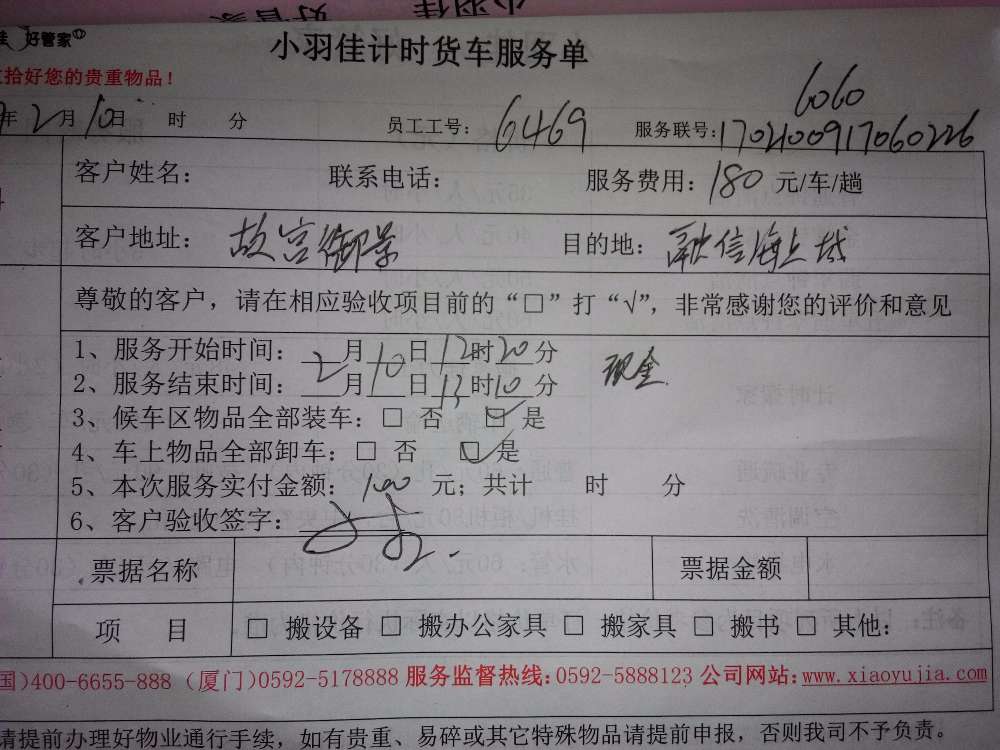 好管家
小羽佳计时货车服务单
拾好您的贵重物品！
6060
年2月10日 时 分 员工工号：6469 服务联号：1702100917060226
客户姓名： 联系电话： 服务费用：180 元/车/趟
客户地址：故宫御景 目的地：融信海上城
尊敬的客户，请在相应验收项目前的“□”打“√”，非常感谢您的评价和意见
1、服务开始时间：2月10日12时20分 现金
2、服务结束时间：月日13时10分
3、候车区物品全部装车：□ 否 ☑ 是
4、车上物品全部卸车：□ 否 ☑ 是
5、本次服务实付金额：180 元；共计 时 分
6、客户验收签字：
票据名称 票据金额
项 目 □ 搬设备 □ 搬办公家具 □ 搬家具 □ 搬书 □ 其他：
国)400-6655-888 (厦门)0592-5178888 服务监督热线：0592-5888123 公司网站：www.xiaoyujia.com
请提前办理好物业通行手续，如有贵重、易碎或其它特殊物品请提前申报，否则我司不予负责。